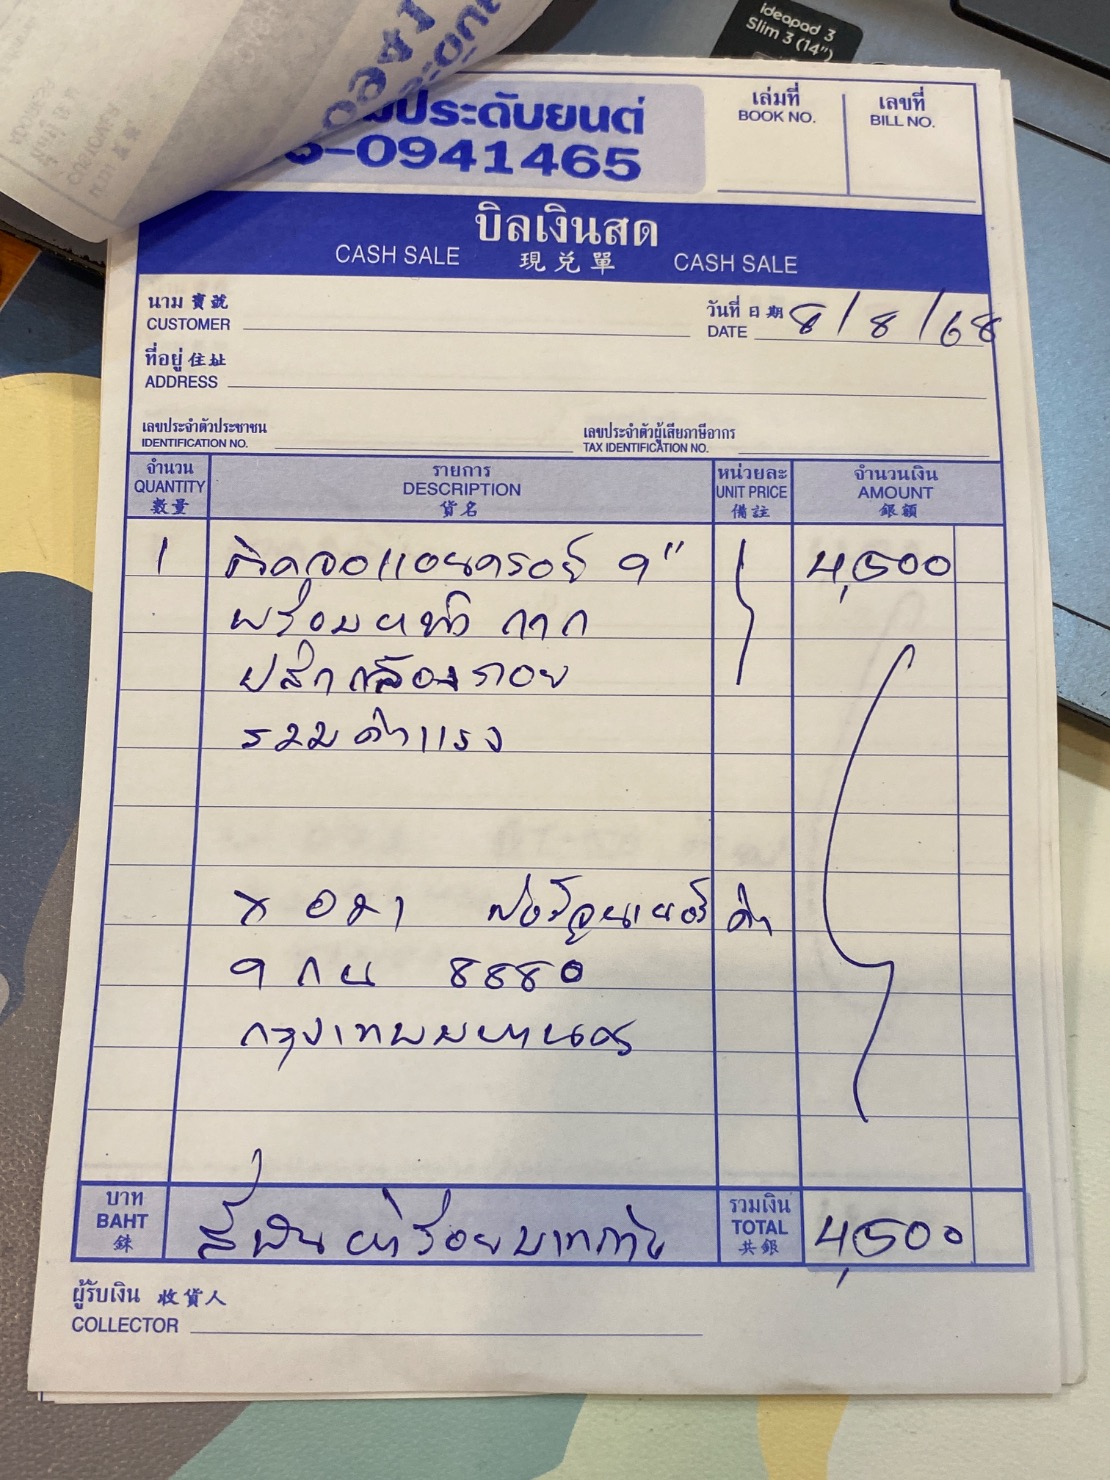 ideapad 3
Slim 3 (14")
ประดับยนต์
-0941465
เล่มที่
BOOK NO.
เลขที่
BILL NO.
บิลเงินสด
CASH SALE 現兌單 CASH SALE
นาม 寶號
CUSTOMER
วันที่ 日期
DATE 8/8/68
ที่อยู่ 住址
ADDRESS
เลขประจำตัวประชาชน
IDENTIFICATION NO.
เลขประจำตัวผู้เสียภาษีอากร
TAX IDENTIFICATION NO.
จำนวน
QUANTITY
數量
รายการ
DESCRIPTION
貨名
หน่วยละ
UNIT PRICE
備註
จำนวนเงิน
AMOUNT
銀額
1 ติดจอแอนดรอย์ 9" 4,500
พร้อมหน้ากาก
ปลั๊ก กล้องถอย
รวมค่าแรง
ฟอร์จูนเนอร์ ดำ
9 กน 8880
กรุงเทพมหานคร
บาท
BAHT
銖
สี่พันห้าร้อยบาทถ้วน
รวมเงิน
TOTAL
共銀
4,500
ผู้รับเงิน 收貨人
COLLECTOR